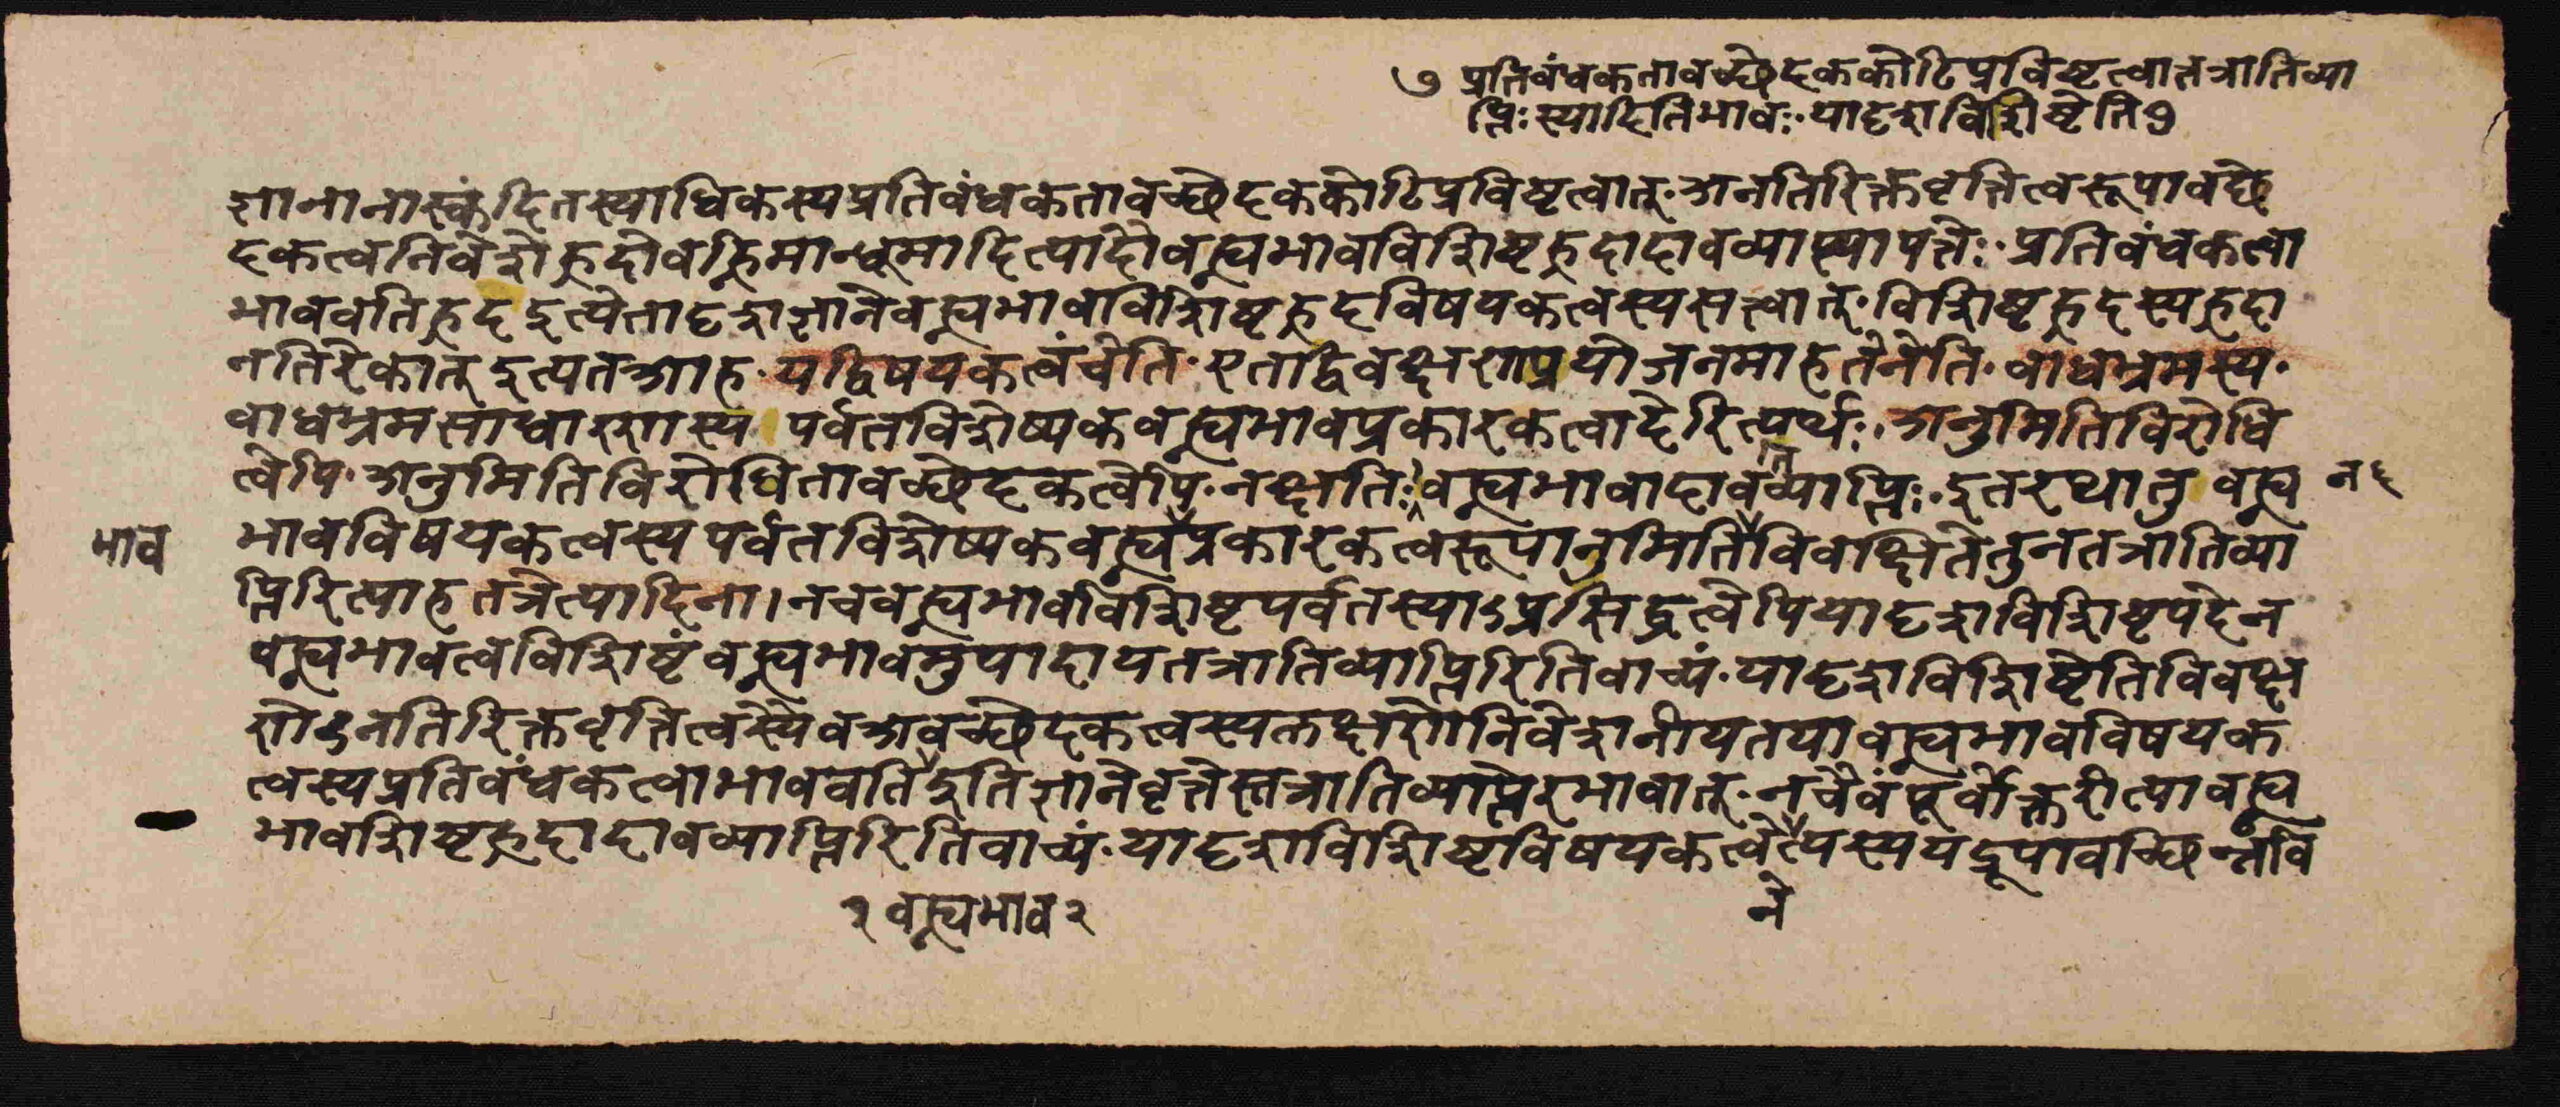 ७ प्रतिवंधकतावच्छेदककोटिप्रविष्टत्वात्तत्रातिव्या
प्तिः स्यादितिभावः यादृशविशिष्टेति ७
ज्ञानानास्कंदितस्याधिकस्यप्रतिवंधकतावच्छेदककोटिप्रविष्टत्वात् अनतिरिक्तवृत्तित्वरूपावछे
दकत्वनिवेशेह्रदोवह्निमान्धूमादित्यादौवह्न्यभावविशिष्टह्रदादावव्याप्त्यापत्तेः प्रतिवंधकत्वा
भाववतिह्रदइत्येतादृशज्ञानेवह्न्यभावविशिष्टह्रदविषयकत्वस्यसत्त्वात् विशिष्टह्रदस्यह्रदा
नतिरेकात् इत्यतआह यद्विषयकत्वंचेति एतद्विवक्षणप्रयोजनमाहतेनेति वाधभ्रमस्य
वाधभ्रमसाधारणस्य पर्वतविशेष्यकवह्न्यभावप्रकारकत्वादेरित्यर्थः अनुमितिविरोधि
त्वेपि अनुमितिविरोधितावच्छेदकत्वेपि नक्षतिः वह्न्यभावादावतिव्याप्तिः इतरथातु वह्न्य न ६
भाव भावविषयकत्वस्यपर्वतविशेष्यकवह्न्यप्रकारकत्वरूपानुमितिविवक्षितेतुनतत्रातिव्या
प्तिरित्याहतत्रेत्यादिना । नचवह्न्यभावविशिष्टपर्वतस्याऽप्रसिद्धत्वेपियादृशविशिष्टपदेन
वह्न्यभावत्वविशिष्टंवह्न्यभावमुपादायतत्रातिव्याप्तिरितिवाच्यं यादृशविशिष्टेतिविवक्ष
णेऽनतिरिक्तवृत्तित्वस्यैवअवच्छेदकत्वस्यलक्षणेनिवेशनीयतयावह्न्यभावविषयक
त्वस्यप्रतिवंधकत्वाभाववतिइतिज्ञानेवृत्तेस्तत्रातिव्याप्तेरभावात् नचैवंपूर्वोक्तरीत्यावह्न्य
भावशिष्टह्रदादावव्याप्तिरितिवाच्यं यादृशविशिष्टविषयकत्वेत्यस्ययद्रूपावच्छिन्नवि
२ वह्न्यभाव २
ने